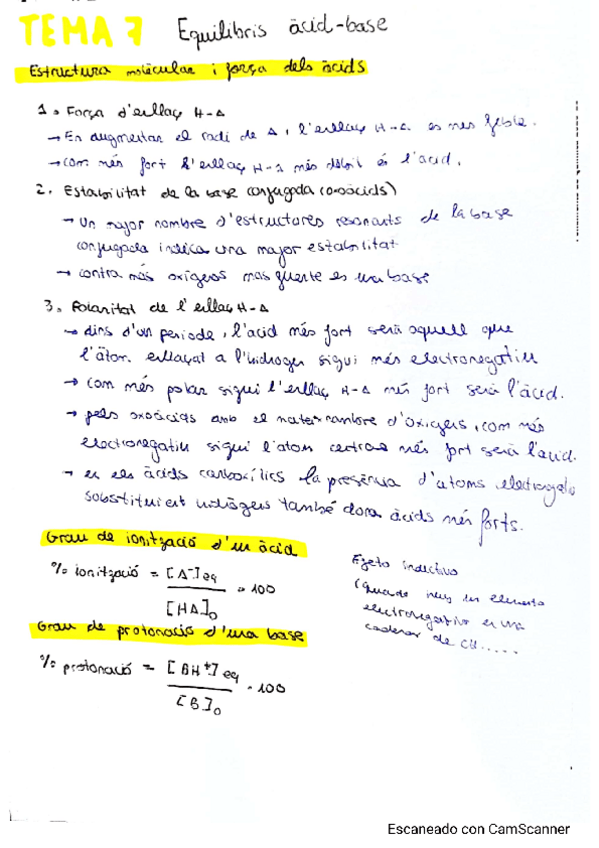 TEMA 7 Equilibris àcid-base
Estructura molecular i força dels àcids
1. Força d'enllaç H-A
→ En augmentar el radi de A, l'enllaç H-A es mes feble.
→ com més fort l'enllaç H-A més dèbil és l'àcid.
2. Estabilitat de la base conjugada (oxoàcids)
→ Un major nombre d'estructures resonants de la base
conjugada indica una major estabilitat
→ contra más oxígenos mas fuerte es una base
3. Polaritat de l'enllaç H-A
→ dins d'un periode, l'àcid més fort serà aquell que
l'àtom enllaçat a l'hidrogen sigui més electronegatiu
→ com més polar sigui l'enllaç H-A més fort serà l'àcid.
→ pels oxoàcids amb el mateix nombre d'oxigens, com més
electronegatiu sigui l'atom central més fort serà l'àcid.
→ en els àcids carboxílics la presència d'atoms
substituient hidrògens també dora àcids més forts.
Grau de ionització d'un àcid
% ionització = [A⁻]eq / [HA]₀ · 100
Efecto inductivo
(Quando hay un elemento
electronegativo en una
cadena de CH.....
Grau de protonació d'una base
% protonació = [BH⁺]eq / [B]₀ · 100
Escaneado con CamScanner